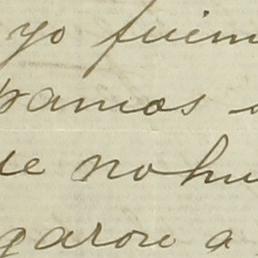 yo fuim
bamos a
ue nohu
garon a